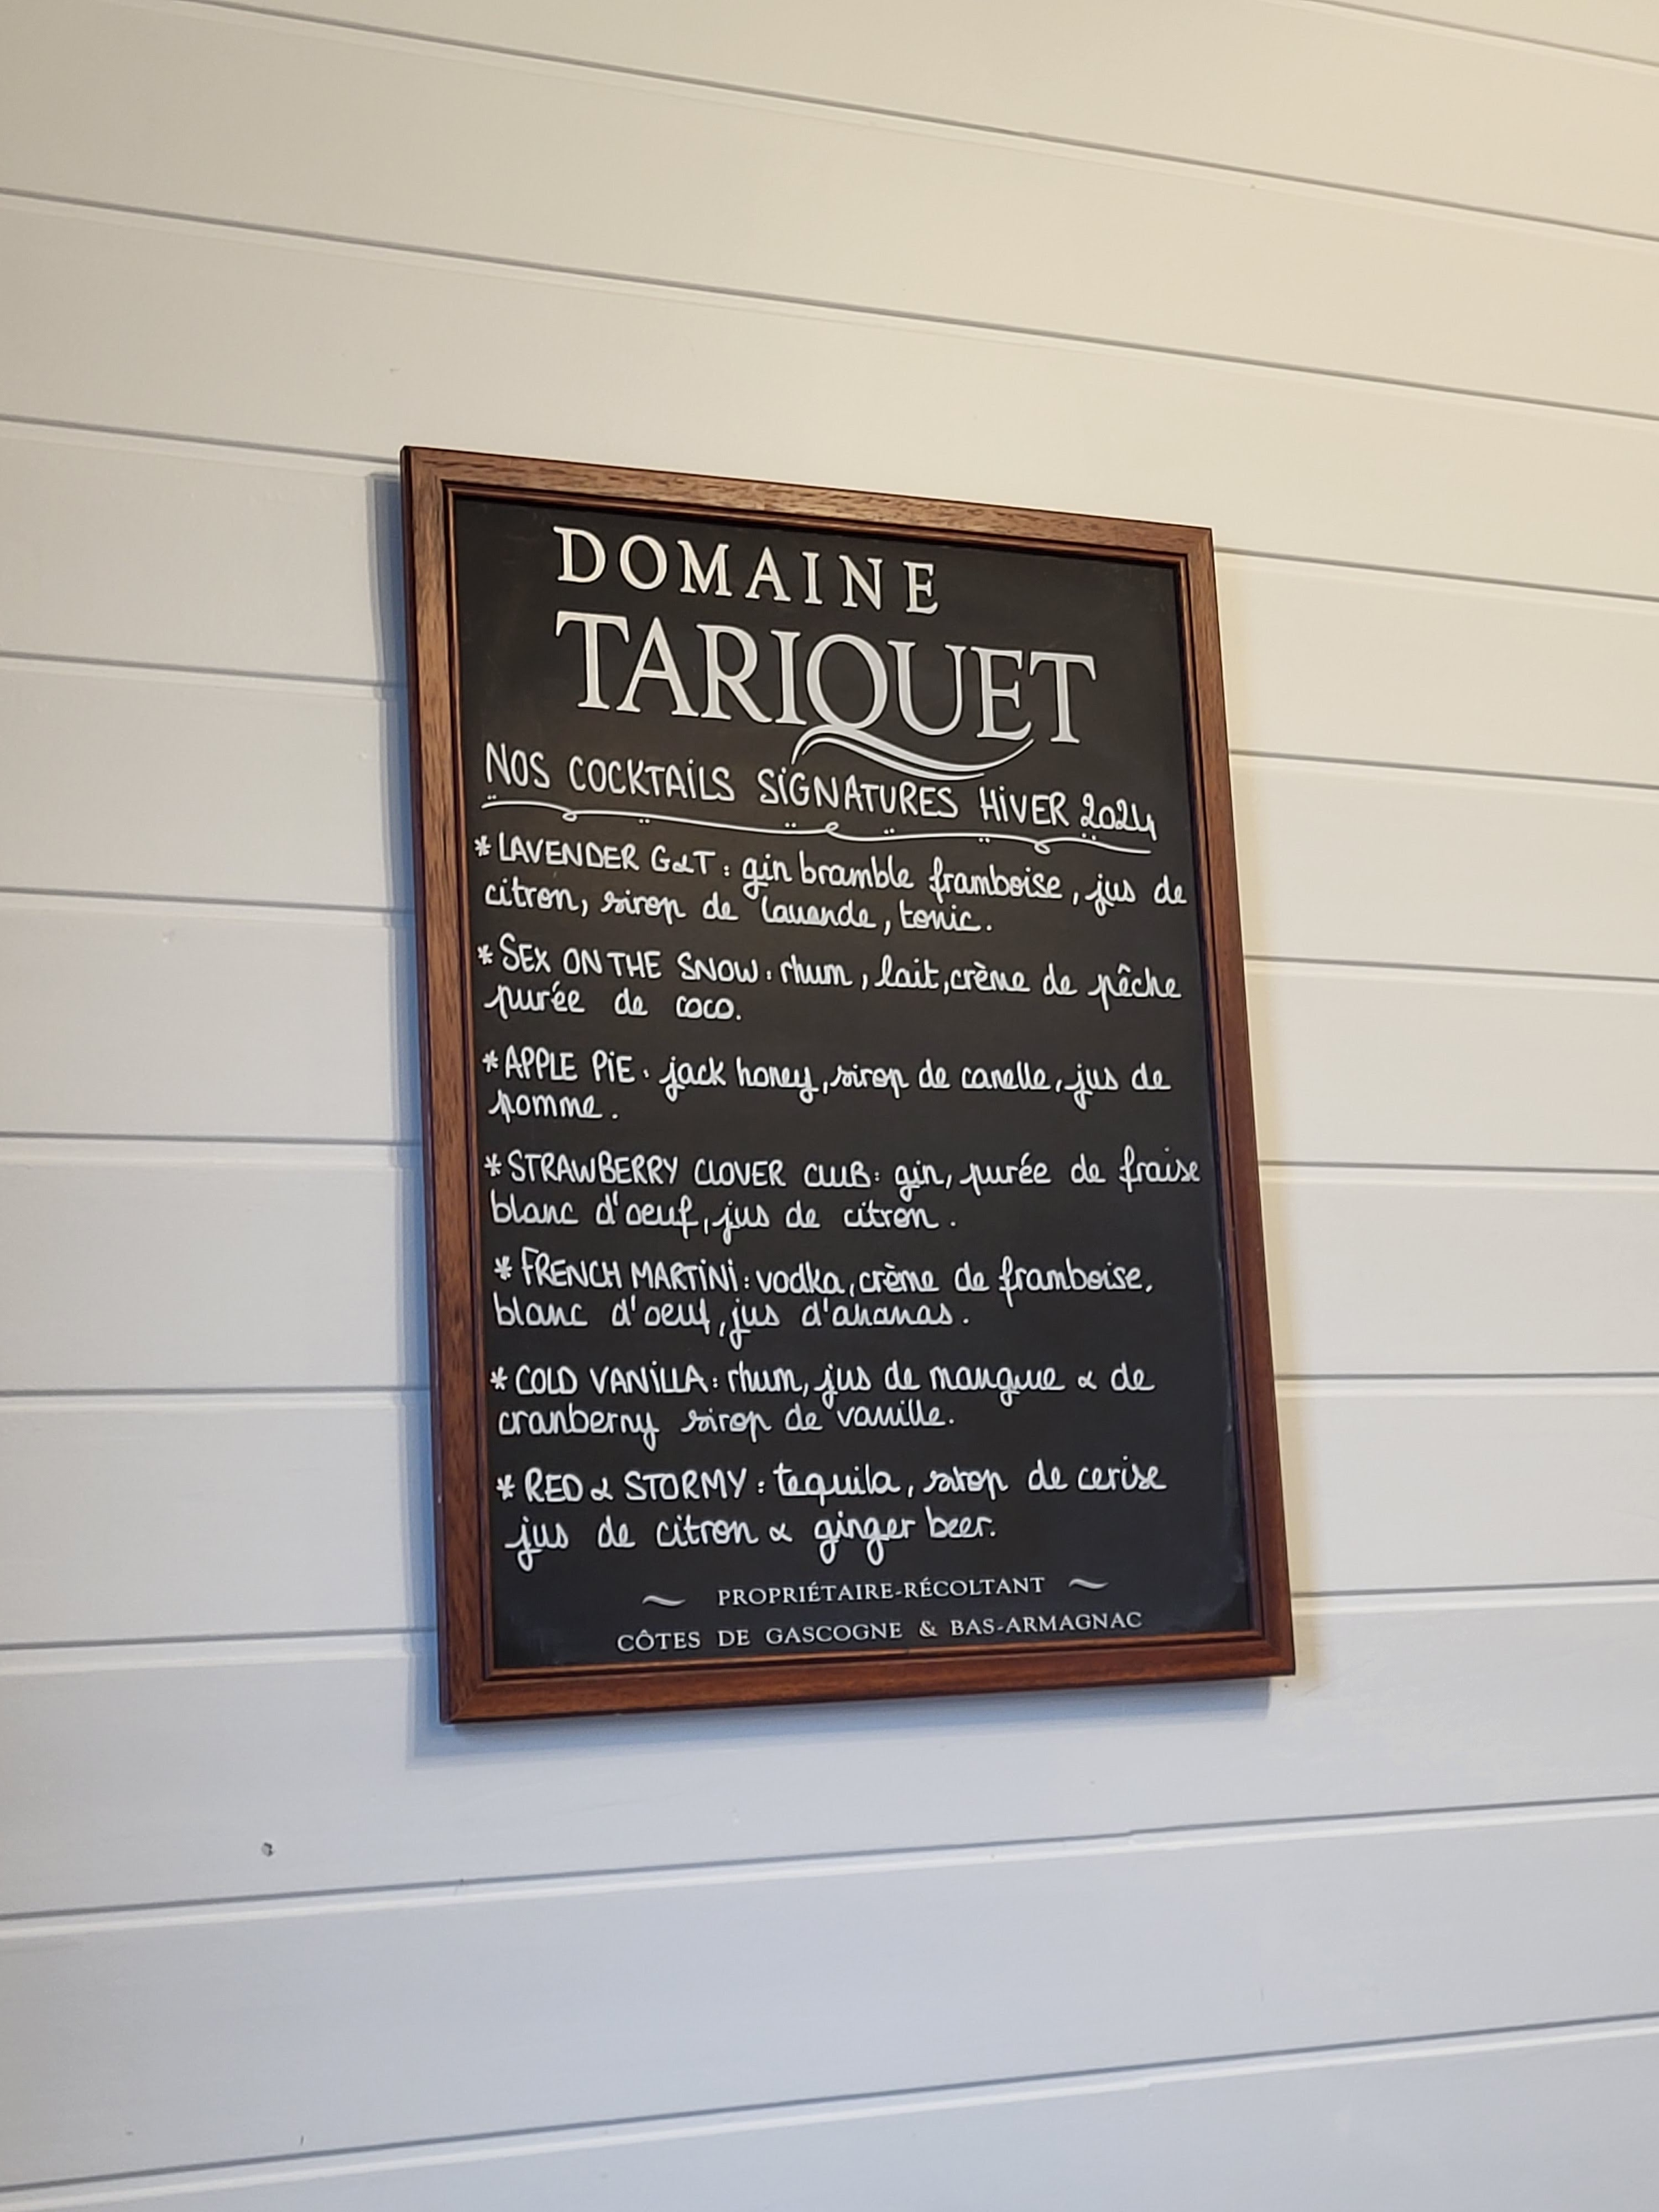 DOMAINE
TARIQUET
NOS COCKTAILS SIGNATURES HIVER 2024
* LAVENDER G&T : gin bramble framboise, jus de
citron, sirop de lavande, tonic.
* SEX ON THE SNOW : rhum, lait, crème de pêche
purée de coco.
* APPLE PIE : jack honey, sirop de canelle, jus de
pomme.
* STRAWBERRY CLOVER CLUB : gin, purée de fraise
blanc d'oeuf, jus de citron.
* FRENCH MARTINI : vodka, crème de framboise,
blanc d'oeuf, jus d'ananas.
* COLD VANILLA : rhum, jus de mangue & de
cranberry sirop de vanille.
* RED & STORMY : tequila, sirop de cerise
jus de citron & ginger beer.
~ PROPRIÉTAIRE-RÉCOLTANT ~
CÔTES DE GASCOGNE & BAS-ARMAGNAC